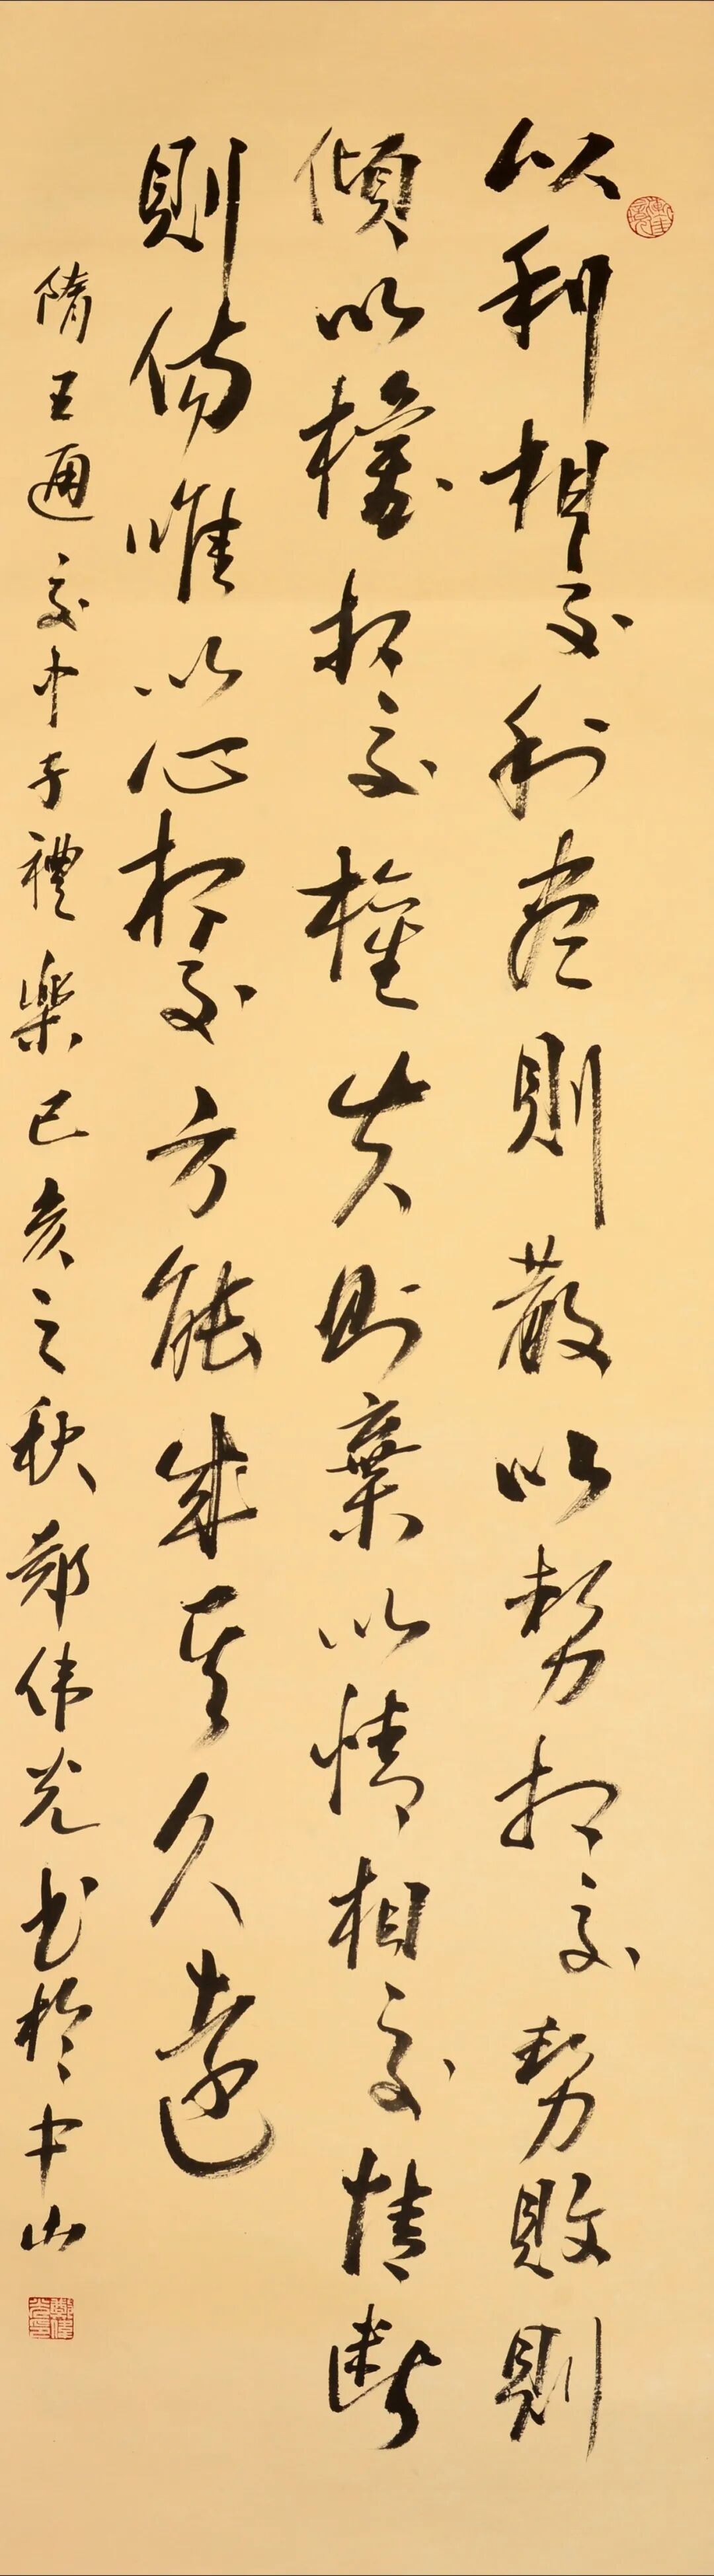 以利相交利尽則散以勢相交勢敗則
傾以權相交權失則棄以情相交情断
則傷唯以心相交方能成其久遠
隋王通文中子禮樂己亥之秋郑伟光书於中山